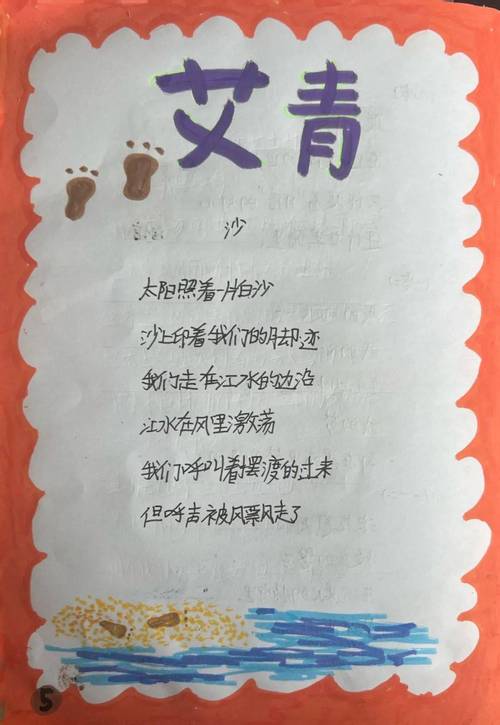 艾青
沙
太阳照着一片白沙
沙上印着我们的脚迹
我们走在江水的边沿
江水在风里激荡
我们呼叫着摆渡的过来
但呼声被风飘走了
5